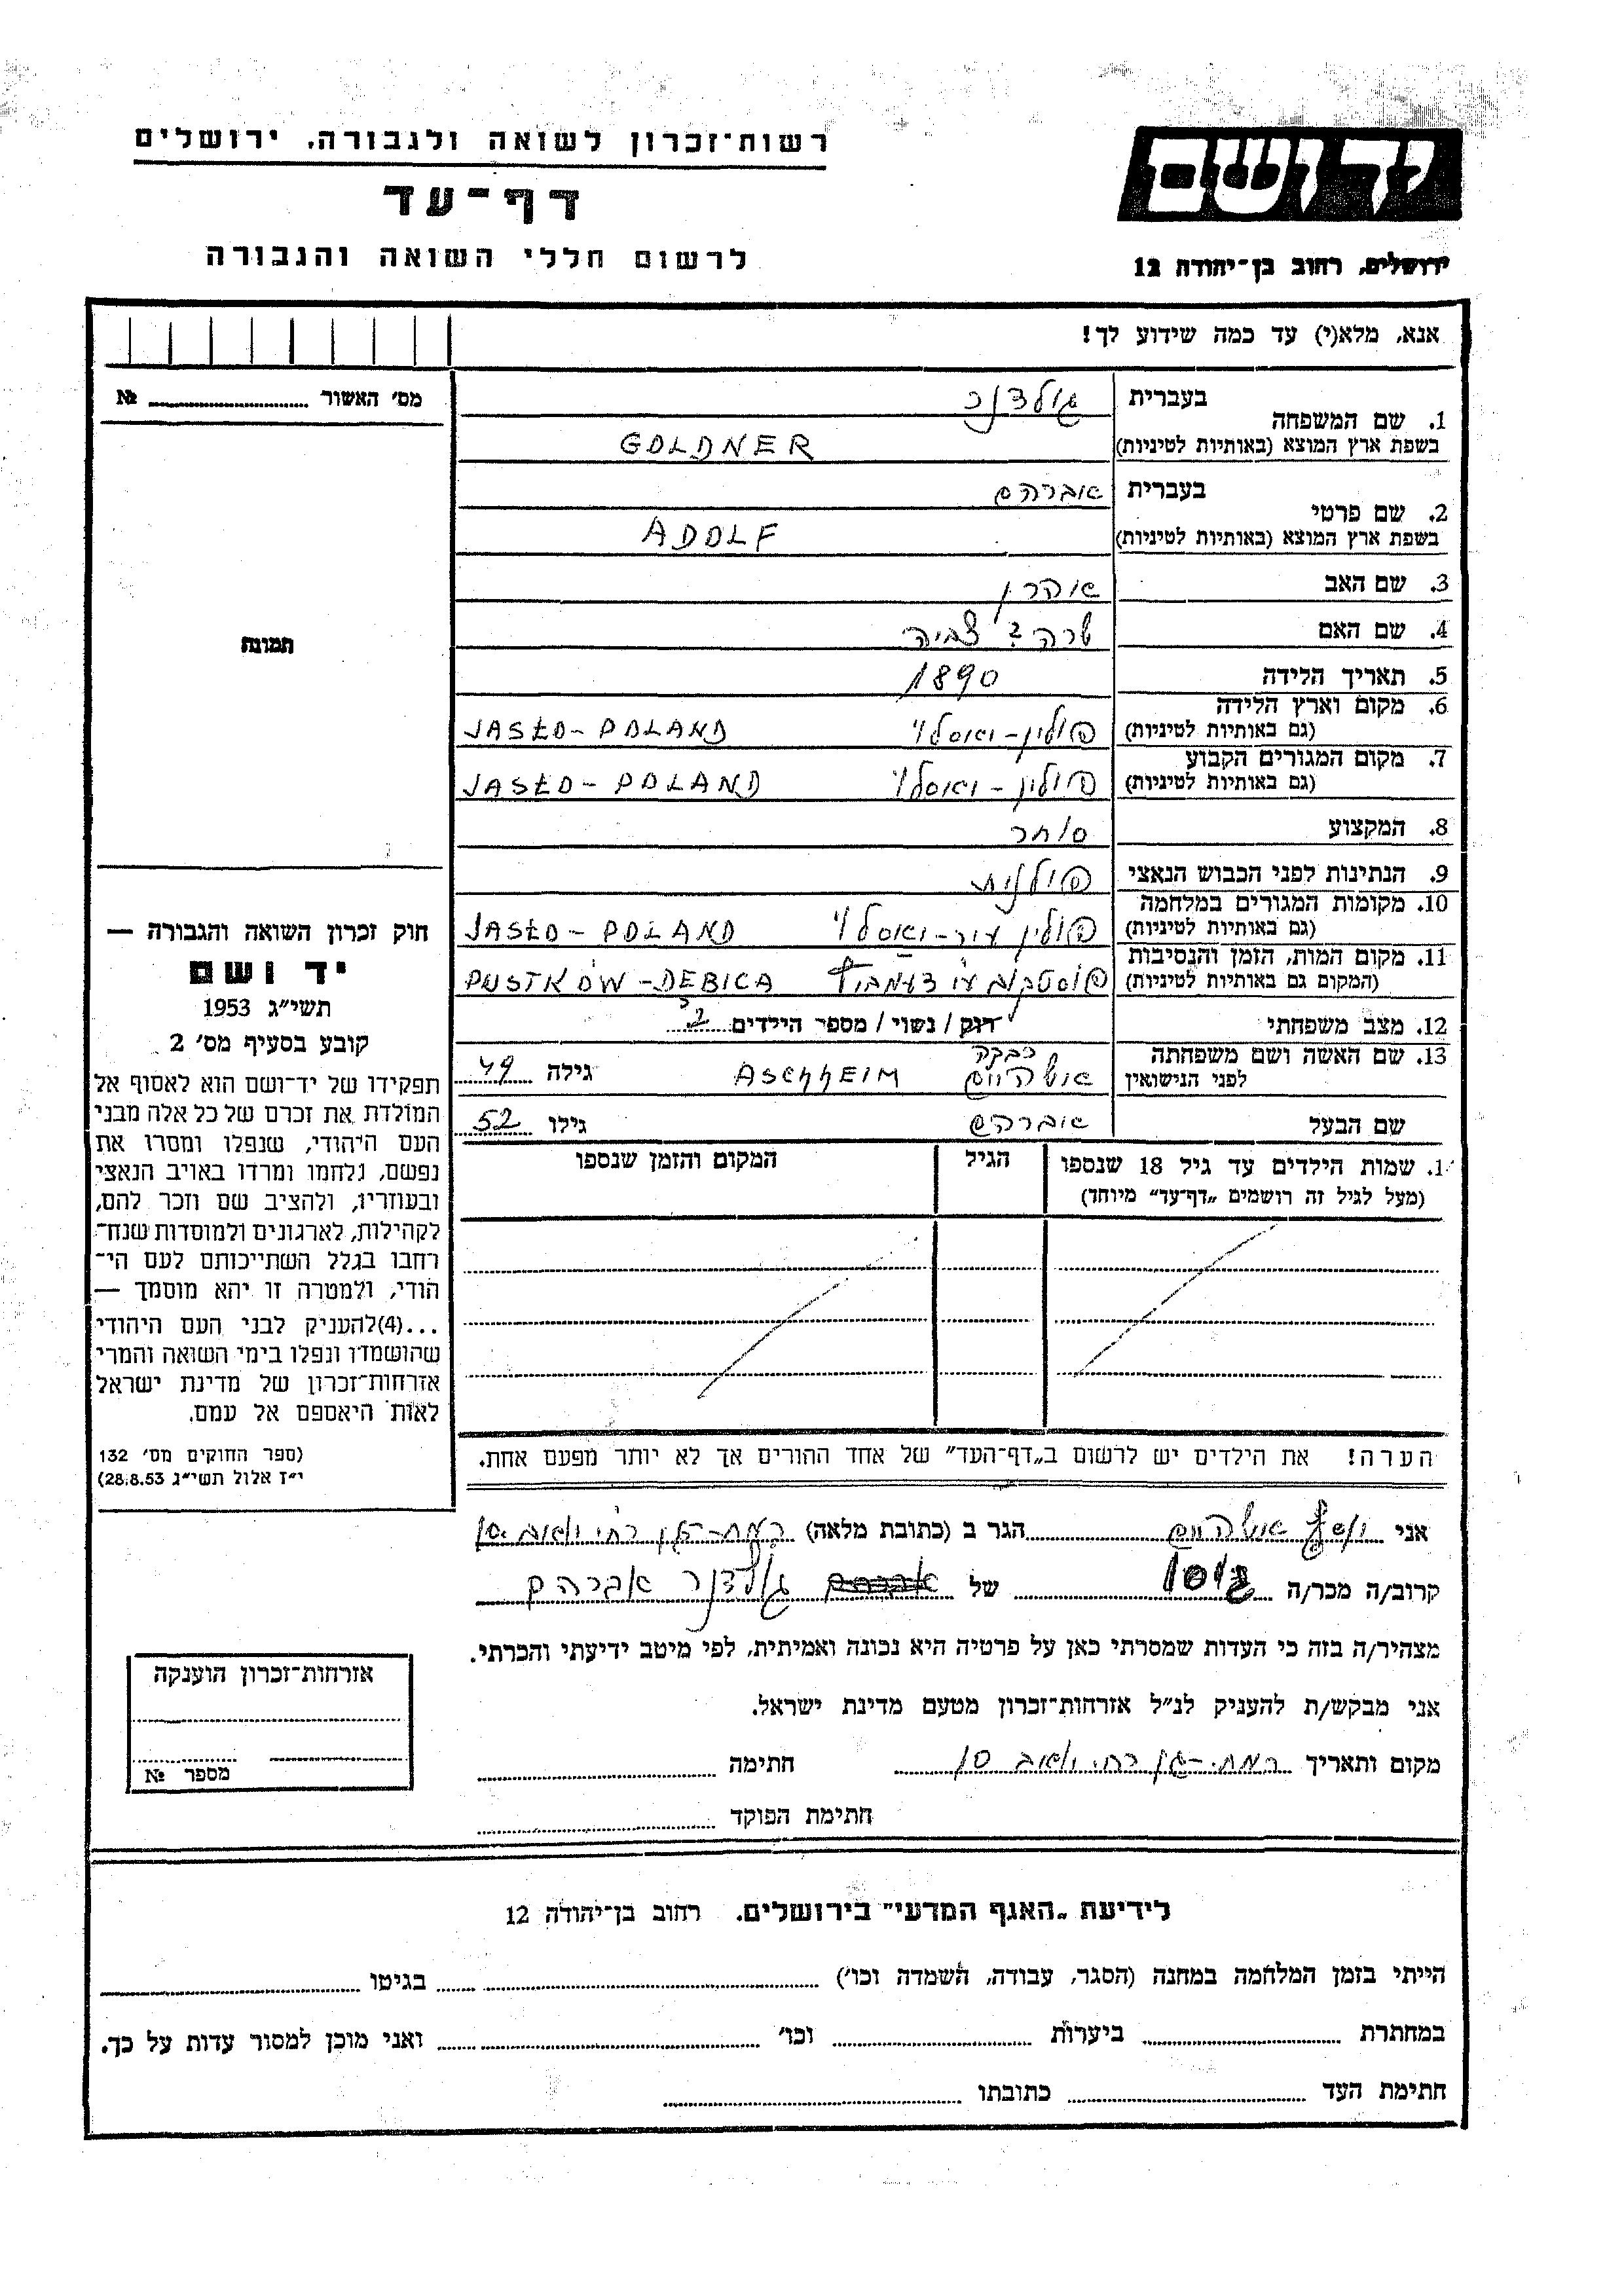 רשות־זכרון לשואה ולגבורה, ירושלים
יד ושם
דף־עד
לרשום חללי השואה והגבורה
ירושלים, רחוב בן־יהודה 12
אנא, מלא(י) עד כמה שידוע לך!
מס׳ האשור № 
תמונה
1. שם המשפחה
בעברית גולדנר
בשפת ארץ המוצא (באותיות לטיניות) GOLDNER
2. שם פרטי
בעברית אברהם
בשפת ארץ המוצא (באותיות לטיניות) ADOLF
3. שם האב אהרן
4. שם האם שרה ? צביה
5. תאריך הלידה 1890
6. מקום וארץ הלידה
(גם באותיות לטיניות) פולין - יאסלו JASŁO - POLAND
7. מקום המגורים הקבוע
(גם באותיות לטיניות) פולין - יאסלו JASŁO - POLAND
8. המקצוע סוחר
9. הנתינות לפני הכבוש הנאצי פולנית
10. מקומות המגורים במלחמה
(גם באותיות לטיניות) פולין עיר - יאסלו JASŁO - POLAND
11. מקום המות, הזמן והנסיבות
(המקום גם באותיות לטיניות) פוסטקוב PUSTKÓW - DEBICA
12. מצב משפחתי רוק / נשוי / מספר הילדים 2
13. שם האשה ושם משפחתה
לפני הנישואין רבקה
אשהיים ASCHHEIM גילה 49
שם הבעל אברהם גילו 52
1. שמות הילדים עד גיל 18 שנספו הגיל המקום והזמן שנספו
(מעל לגיל זה רושמים „דף־עד״ מיוחד)
הערה! את הילדים יש לרשום ב„דף־העד״ של אחד ההורים אך לא יותר מפעם אחת.
חוק זכרון השואה והגבורה —
יד ושם
תשי״ג 1953
קובע בסעיף מס׳ 2
תפקידו של יד־ושם הוא לאסוף אל
המולדת את זכרם של כל אלה מבני
העם היהודי, שנפלו ומסרו את
נפשם, נלחמו ומרדו באויב הנאצי
ובעוזריו, ולהציב שם וזכר להם,
לקהילות, לארגונים ולמוסדות שנח־
רבו בגלל השתייכותם לעם הי־
הודי, ולמטרה זו יהא מוסמך —
...(4)להעניק לבני העם היהודי
שהושמדו ונפלו בימי השואה והמרי
אזרחות־זכרון של מדינת ישראל
לאות היאספם אל עמם.
(ספר החוקים מס׳ 132
י״ז אלול תשי״ג 28.8.53)
אני יוסף אשהיים הגר ב (כתובת מלאה) רמת-גן רח׳ יואב 10
קרוב/ה מכר/ה גיסו של גולדנר אברהם
מצהיר/ה בזה כי העדות שמסרתי כאן על פרטיה היא נכונה ואמיתית, לפי מיטב ידיעתי והכרתי.
אני מבקש/ת להעניק לנ״ל אזרחות־זכרון מטעם מדינת ישראל.
מקום ותאריך רמת-גן רח׳ יואב 10 חתימה
חתימת הפוקד
אזרחות־זכרון הוענקה
מספר №
לידיעת „האגף המדעי״ בירושלים. רחוב בן־יהודה 12
הייתי בזמן המלחמה במחנה (הסגר, עבודה, השמדה וכו׳) בגיטו
במחתרת ביערות וכו׳ ואני מוכן למסור עדות על כך.
חתימת העד כתובתו